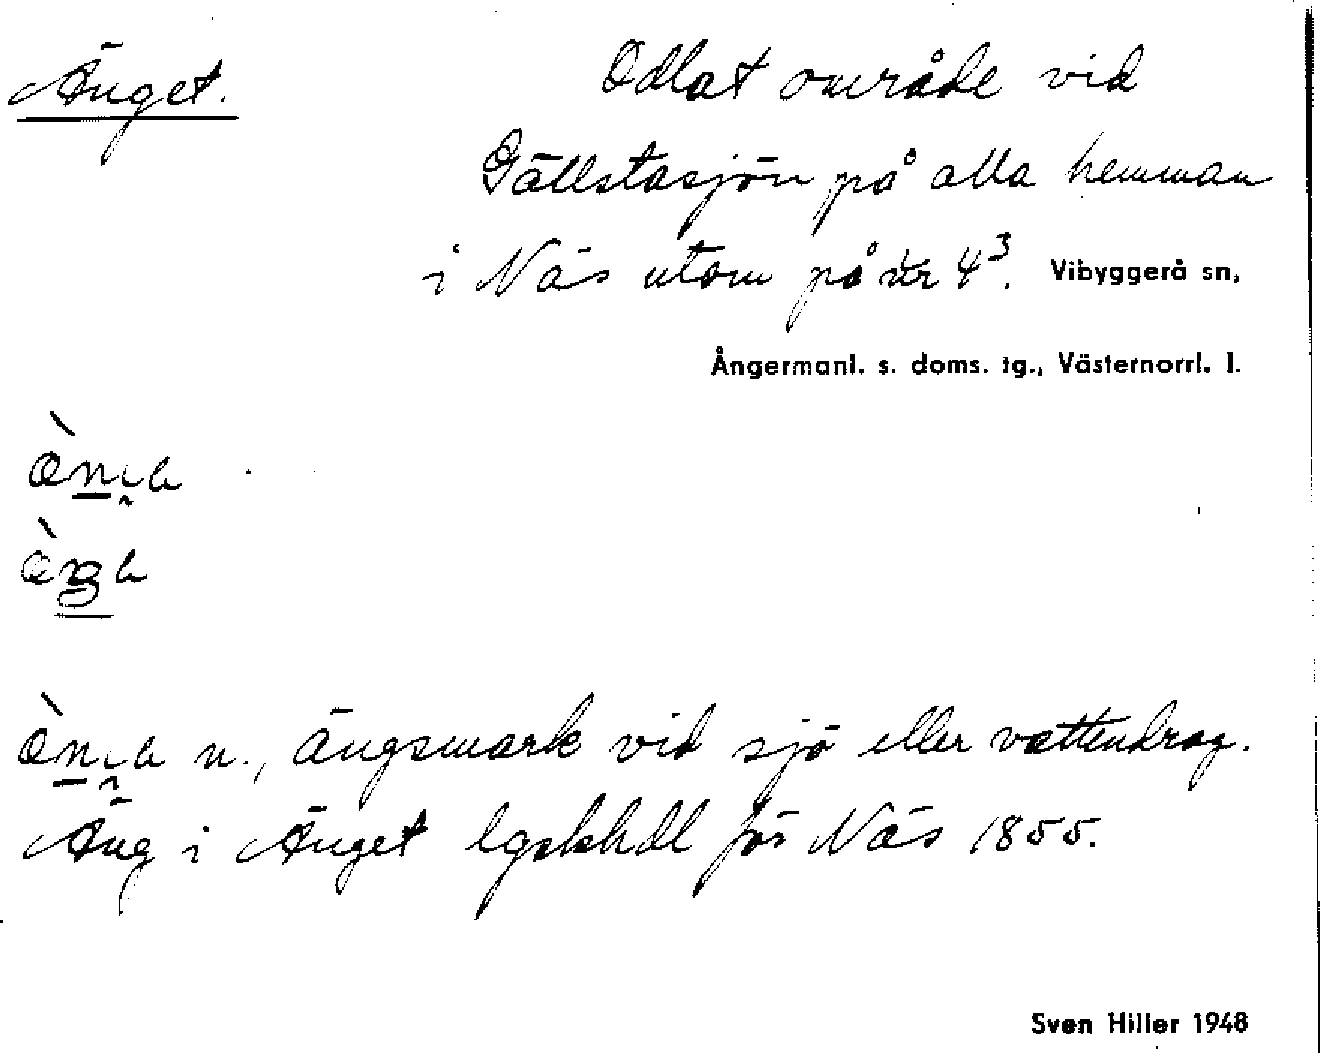 Änget.
Odlat område vid
Gällstasjön på alla hemman
i Näs utom på nr 4³. Vibyggerå sn,
Ångermanl. s. doms. tg., Västernorrl. l.
n., ängsmark vid sjö eller vattendrag.
Äng i Änget lgskhdl för Näs 1855.
Sven Hiller 1948